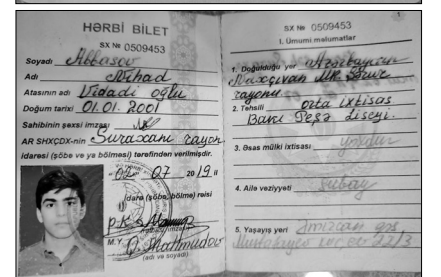 HƏRBİ BİLET
SX № 0509453
Soyadı Abbasov
Adı Nihad
Atasının adı Vidadi oğlu
Doğum tarixi 01.01.2001
Sahibinin şəxsi imzası
AR SHXÇDX-nin Suraxanı rayon
idarəsi (şöbə və ya bölməsi) tərəfindən verilmişdir.
"02" 07 2019 il
İdarə (şöbə, bölmə) rəisi
M.Y. Mahmudov
(adı və soyadı)
1
SX № 0509453
I. Ümumi məlumatlar
1. Doğulduğu yer Azərbaycan
Naxçıvan MR
rayonu
2. Təhsili orta ixtisas
Bakı Peşə Liseyi.
3. Əsas mülki ixtisası yoxdur
4. Ailə vəziyyəti Subay
5. Yaşayış yeri Əmircan qəs,
22/3